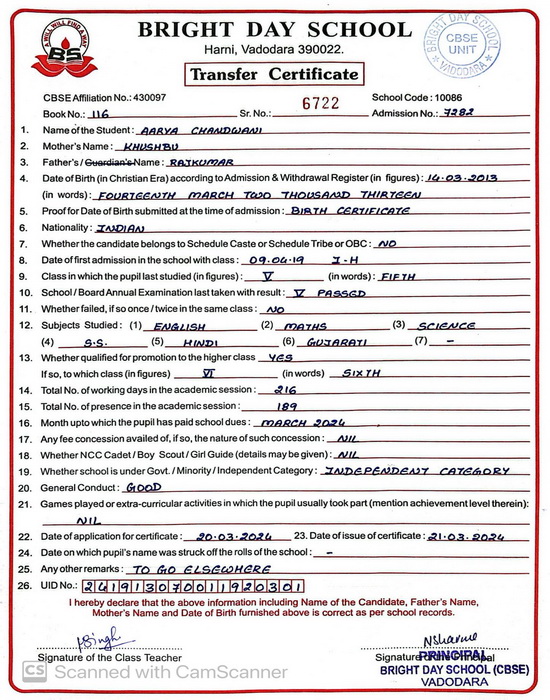 A WILL WILL FIND A WAY
BS
BRIGHT DAY SCHOOL
Harni, Vadodara 390022.
Transfer Certificate
BRIGHT DAY SCHOOL
CBSE
UNIT
VADODARA
CBSE Affiliation No.: 430097 School Code : 10086
Book No.: 116 Sr. No.: 6722 Admission No.: 7282
1. Name of the Student : AARYA CHANDWANI
2. Mother's Name : KHUSHBU
3. Father's / Guardian's Name : RAJKUMAR
4. Date of Birth (in Christian Era) according to Admission & Withdrawal Register (in figures) : 14.03.2013
(in words) : FOURTEENTH MARCH TWO THOUSAND THIRTEEN
5. Proof for Date of Birth submitted at the time of admission : BIRTH CERTIFICATE
6. Nationality : INDIAN
7. Whether the candidate belongs to Schedule Caste or Schedule Tribe or OBC : NO
8. Date of first admission in the school with class : 09.04.19 I-H
9. Class in which the pupil last studied (in figures) : V (in words) : FIFTH
10. School / Board Annual Examination last taken with result : V PASSED
11. Whether failed, if so once / twice in the same class : NO
12. Subjects Studied : (1) ENGLISH (2) MATHS (3) SCIENCE
(4) S.S. (5) HINDI (6) GUJARATI (7) -
13. Whether qualified for promotion to the higher class YES
If so, to which class (in figures) VI (in words) SIXTH
14. Total No. of working days in the academic session : 216
15. Total No. of presence in the academic session : 189
16. Month upto which the pupil has paid school dues : MARCH 2024
17. Any fee concession availed of, if so, the nature of such concession : NIL
18. Whether NCC Cadet / Boy Scout / Girl Guide (details may be given) : NIL
19. Whether school is under Govt. / Minority / Independent Category : INDEPENDENT CATEGORY
20. General Conduct : GOOD
21. Games played or extra-curricular activities in which the pupil usually took part (mention achievement level therein) :
NIL
22. Date of application for certificate : 20.03.2024 23. Date of issue of certificate : 21.03.2024
24. Date on which pupil's name was struck off the rolls of the school : -
25. Any other remarks : TO GO ELSEWHERE
26. UID No.: 241913070011920301
I hereby declare that the above information including Name of the Candidate, Father's Name,
Mother's Name and Date of Birth furnished above is correct as per school records.
PSingh NSharma
Signature of the Class Teacher Signature Principal
PRINCIPAL
BRIGHT DAY SCHOOL (CBSE)
VADODARA
CS Scanned with CamScanner